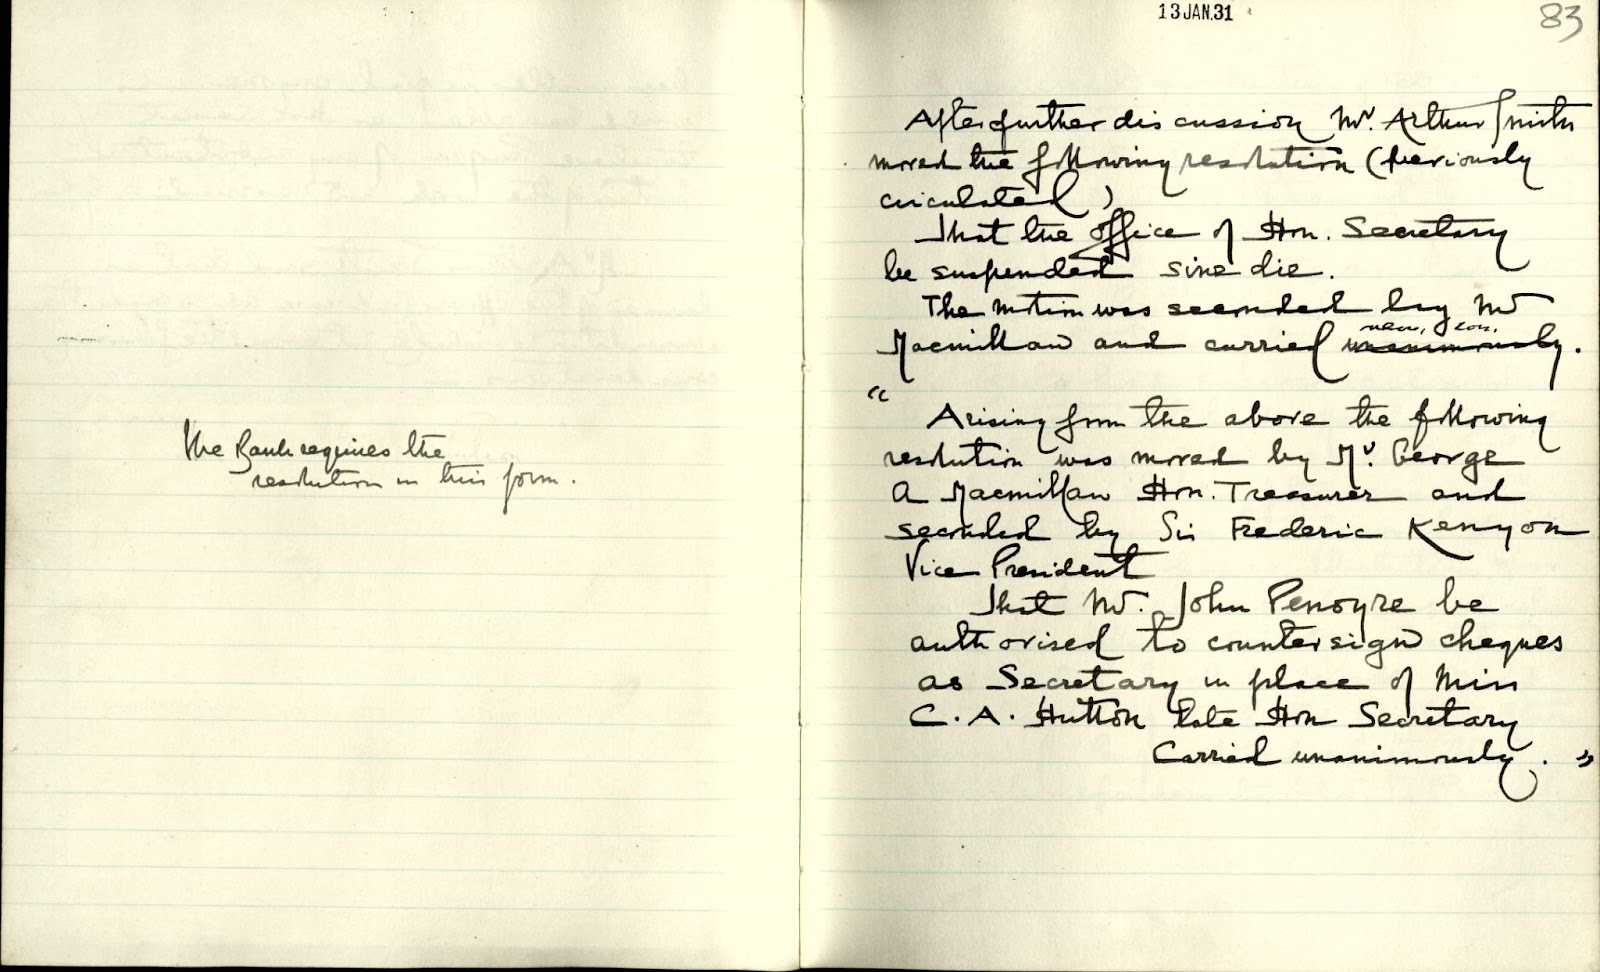 The Bank requires the
resolution in this form.
13 JAN.31
83
After further discussion Mr. Arthur Smith
moved the following resolution (previously
circulated)
That the office of Hon. Secretary
be suspended sine die.
The motion was seconded by Mr
Macmillan and carried nem. con.
unanimously.
"
Arising from the above the following
resolution was moved by Mr. George
A Macmillan Hon. Treasurer and
seconded by Sir Frederic Kenyon
Vice President
That Mr. John Penoyre be
authorised to countersign cheques
as Secretary in place of Miss
C. A. Hutton late Hon Secretary
Carried unanimously. "